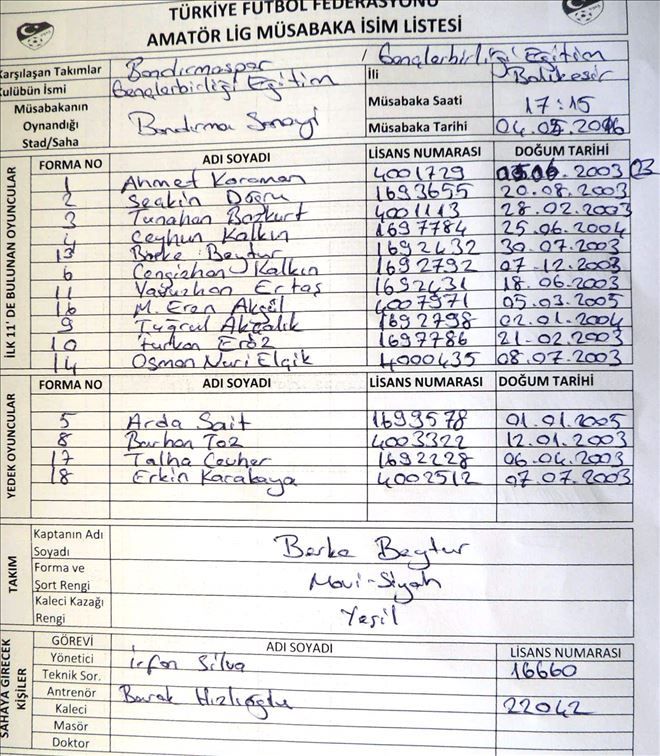 TÜRKİYE FUTBOL FEDERASYONU
AMATÖR LİG MÜSABAKA İSİM LİSTESİ
Karşılaşan Takımlar Bandırmaspor / Gençlerbirliği Eğitim
Kulübün İsmi Gençlerbirliği Eğitim İli Balıkesir
Müsabakanın Oynandığı Stad/Saha Bandırma Sanayi Müsabaka Saati 17:15
Müsabaka Tarihi 04.05.2016
İLK 11' DE BULUNAN OYUNCULAR
FORMA NO ADI SOYADI LİSANS NUMARASI DOĞUM TARİHİ
1 Ahmet Karaman 4001729 .2003
2 Seçkin Doğru 1693655 20.08.2003
3 Tunahan Bozkurt 4001113 28.02.2003
4 Ceyhun Kalkın 1697784 25.06.2004
13 Berke Beytur 1692432 30.07.2003
6 Cengizhan Kalkın 1692792 07.12.2003
11 Yağızhan Ertaş 1692431 18.06.2003
16 M. Eren Akgül 4007971 05.03.2005
9 Tuğrul Akçalık 1692798 02.01.2004
10 Furkan Eröz 1697786 21.02.2003
14 Osman Nuri Elçik 4000435 08.07.2003
YEDEK OYUNCULAR
FORMA NO ADI SOYADI LİSANS NUMARASI DOĞUM TARİHİ
5 Arda Sait 1699578 01.01.2005
8 Burhan Toz 4003322 12.01.2003
17 Talha Cevher 1692228 06.04.2003
18 Erkin Karakaya 4002512 07.07.2003
TAKIM
Kaptanın Adı Soyadı Berke Beytur
Forma ve Şort Rengi Mavi-Siyah
Kaleci Kazağı Rengi Yeşil
SAHAYA GİRECEK KİŞİLER
GÖREVİ ADI SOYADI LİSANS NUMARASI
Yönetici İrfan Silva 16660
Teknik Sor.
Antrenör Burak Hızlıoğlu 22042
Kaleci
Masör
Doktor